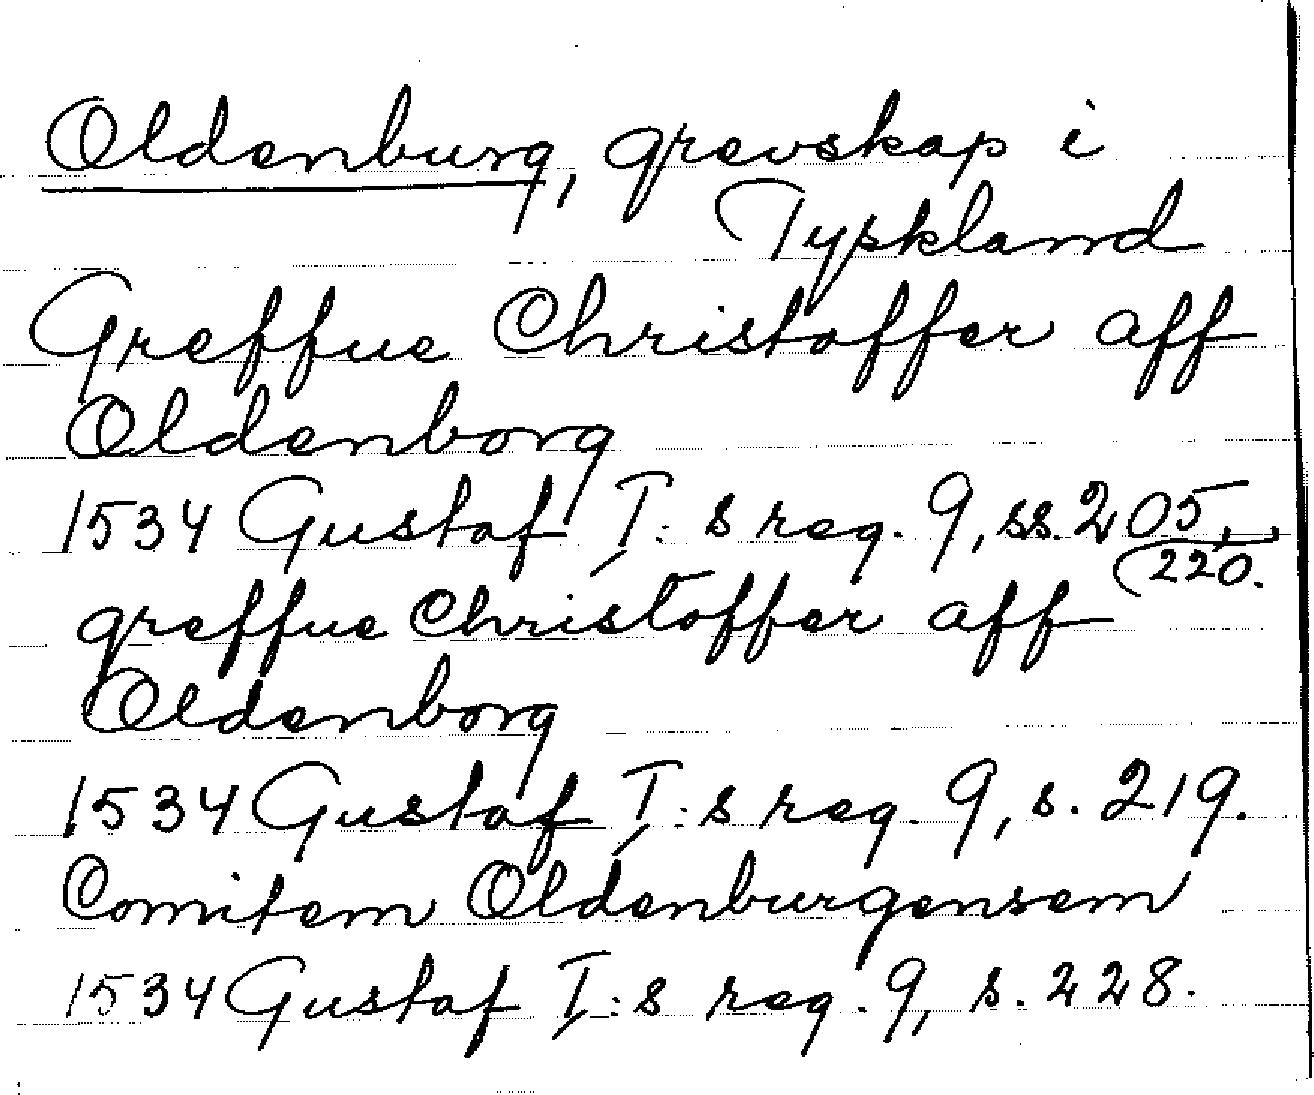 Oldenburg, grevskap i
Tyskland
Greffue Christoffer aff
Oldenborg
1534 Gustaf I:s reg. 9, ss. 205,
220.
greffue Christoffer aff
Oldenborg
1534 Gustaf I:s reg. 9, s. 219.
Comitem Oldenburgensem
1534 Gustaf I:s reg. 9, s. 228.